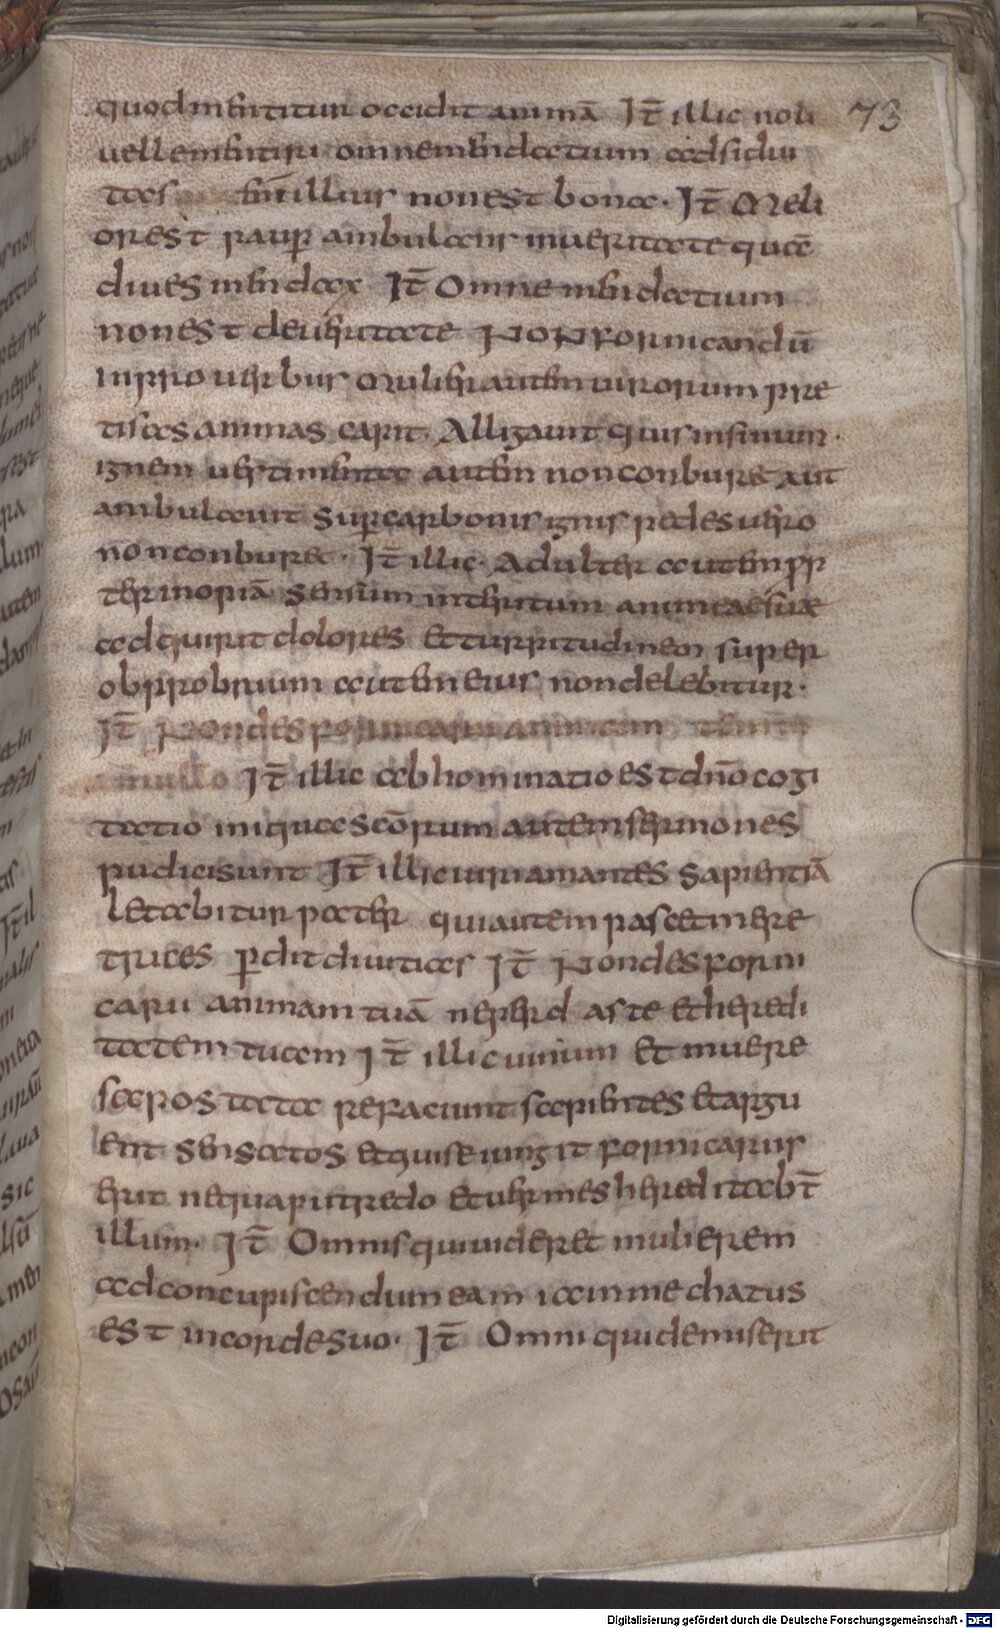 quod mentitur occidit animā It̄ illic noli
73
velle mentiri omne mendatium adsidui
tas enī illius non est bona. It̄ Meli
or est paup ambulans in veritate quā
dives mendax It̄ Omne mendatium
non est de veritate NON Fornicandū
in proverbiis Mulier autem virorum pre
tisas animas capit. Alligavit quis in sinum.
ignem vertimenta autem non conburet aut
ambulavit sup carbonis ignis pedes vero
non conburet. It̄ illic. Adulter autem prop
ter inopiā sensum interitum animae suae
adquirit dolores et turpitudinem super
obprobrium autem eius non delebitur.
It̄ Non des fornicariis animam
It̄ illic abhominatio est dn̄o cogi
tatio iniqua scōrum autem sermones
pudici sunt It̄ illic viri amantes sapientiā
letabitur pater qui autem pascet mere
trices pdit divitias It̄ Non des forni
carii animam tuā ne perd as te et heredi
tatem tuam It̄ illic vinum et muliere
apostatare faciunt sapientes et argu
ent sensatos et qui se iungit fornicariis
erit nequa putredo et vermes hereditabt̄
illum. It̄ Omnis qui videret mulierem
ad concupiscendum eam iam mechatus
est in corde suo. It̄ Omni qui demiserit
Digitalisierung gefördert durch die Deutsche Forschungsgemeinschaft - DFG